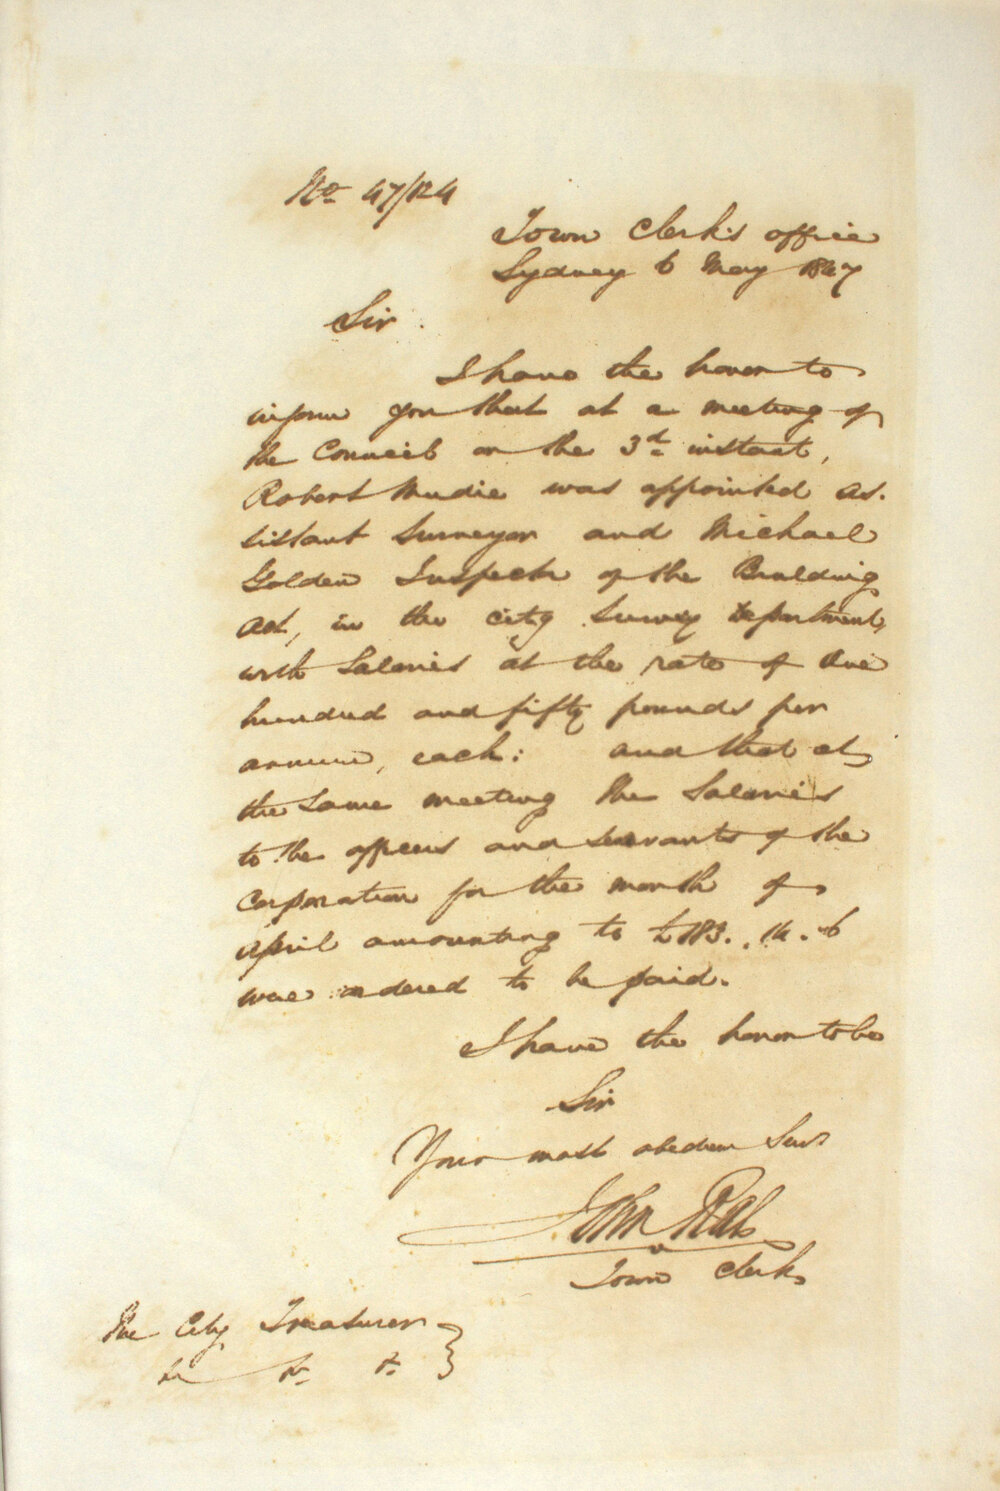 No 47/124
Town Clerk's office
Sydney 6 May 1847
Sir
I have the honor to
inform you that at a meeting of
the Council on the 3d instant,
Robert Mudie was appointed As-
sistant Surveyor and Michael
Golden Inspector of the Building
Act, in the city Survey Department,
with Salaries at the rate of One
hundred and fifty pounds per
annum, each: and that at
the same meeting the Salaries
to the officers and servants of the
Corporation for the month of
April amounting to £183..14.6
was ordered to be paid.
I have the honor to be
Sir
Your most obedient Servt
John Rae
Town Clerk
The City Treasurer